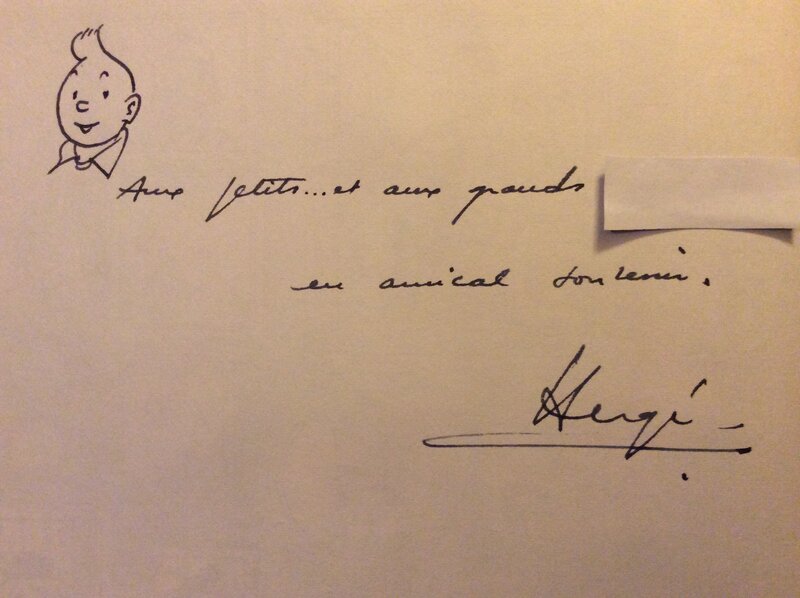 Aux petits...et aux grands
en amical souvenir.
Hergé